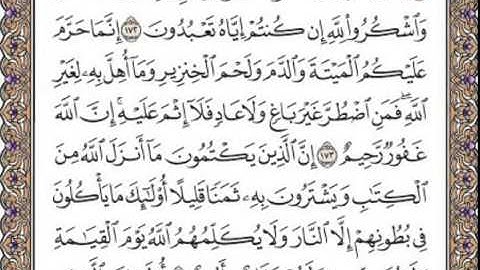 وَٱشۡكُرُواْ لِلَّهِ إِن كُنتُمۡ إِيَّاهُ تَعۡبُدُونَ ١٧٢ إِنَّمَا حَرَّمَ
عَلَيۡكُمُ ٱلۡمَيۡتَةَ وَٱلدَّمَ وَلَحۡمَ ٱلۡخِنزِيرِ وَمَآ أُهِلَّ بِهِۦ لِغَيۡرِ
ٱللَّهِۖ فَمَنِ ٱضۡطُرَّ غَيۡرَ بَاغٖ وَلَا عَادٖ فَلَآ إِثۡمَ عَلَيۡهِۚ إِنَّ ٱللَّهَ
غَفُورٞ رَّحِيمٌ ١٧٣ إِنَّ ٱلَّذِينَ يَكۡتُمُونَ مَآ أَنزَلَ ٱللَّهُ مِنَ
ٱلۡكِتَٰبِ وَيَشۡتَرُونَ بِهِۦ ثَمَنٗا قَلِيلًا أُوْلَٰٓئِكَ مَا يَأۡكُلُونَ
فِي بُطُونِهِمۡ إِلَّا ٱلنَّارَ وَلَا يُكَلِّمُهُمُ ٱللَّهُ يَوۡمَ ٱلۡقِيَٰمَةِ